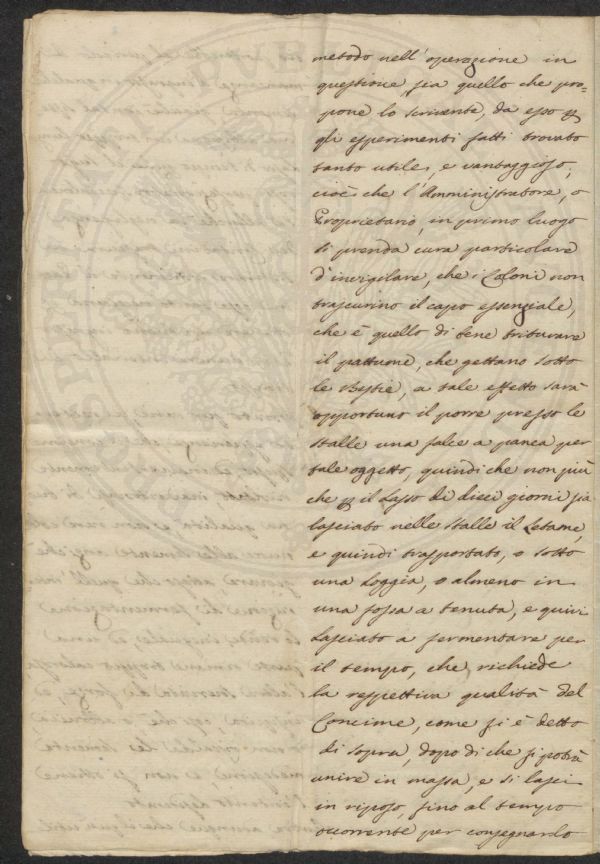 metodo nell'operazione in
questione sia quello che pro-
pone lo scrivente, da esso p
gli esperimenti fatti trovato
tanto utile, e vantaggioso,
cioè che l'Amministratore, o
Proprietario, in primo luogo
si prenda cura particolare
d'invigilare, che i Coloni non
trascurino il capo essenziale,
che è quello di bene triturare
il pattume, che gettano sotto
le Bestie, a tale effetto sarà
opportuno il porre presso le
stalle una falce a panca per
tale oggetto, quindi che non più
che p il lasso di dieci giorni sia
lasciato nelle stalle il Letame,
e quindi trasportato, o sotto
una Loggia, o almeno in
una fossa a tenuta, e quivi
lasciato a fermentare per
il tempo, che richiede
la respettiva qualità del
Concime, come si è detto
di sopra, dopo di che si potrà
unire in massa, e si lasci
in riposo, fino al tempo
occorrente per consegnarlo